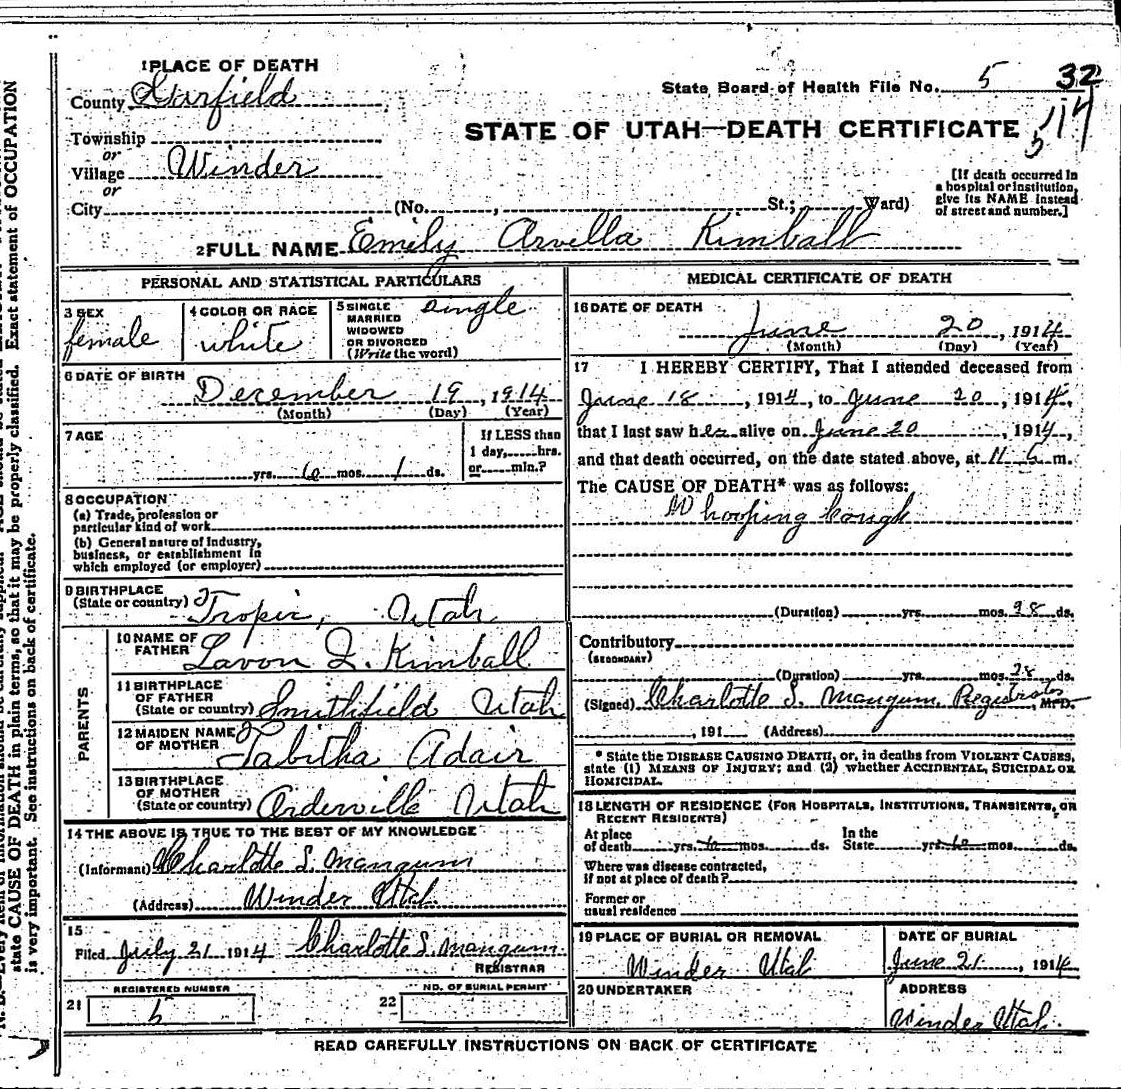 1 PLACE OF DEATH
County Garfield
State Board of Health File No. 5 32
Township
STATE OF UTAH—DEATH CERTIFICATE
or
Village Winder
or
[If death occurred in a hospital or institution, give its NAME instead of street and number.]
City (No. , St.; Ward)
2 FULL NAME Emily Arvella Kimball
PERSONAL AND STATISTICAL PARTICULARS
3 SEX
female
4 COLOR OR RACE
white
5 SINGLE
MARRIED
WIDOWED
OR DIVORCED
(Write the word)
single
6 DATE OF BIRTH
December 19, 1914
(Month) (Day) (Year)
7 AGE
yrs. 6 mos. 1 ds.
If LESS than
1 day, hrs.
or min.?
8 OCCUPATION
(a) Trade, profession or
particular kind of work
(b) General nature of Industry,
business, or establishment in
which employed (or employer)
9 BIRTHPLACE
(State or country) Tropic, Utah
PARENTS
10 NAME OF
FATHER Lavon L. Kimball
11 BIRTHPLACE
OF FATHER
(State or country) Smithfield Utah
12 MAIDEN NAME
OF MOTHER Tabitha Adair
13 BIRTHPLACE
OF MOTHER
(State or country) Orderville Utah
14 THE ABOVE IS TRUE TO THE BEST OF MY KNOWLEDGE
(Informant) Charlotte S. Mangum
(Address) Winder Utah
15
Filed July 21 1914 Charlotte S. Mangum
REGISTRAR
21 REGISTERED NUMBER
5
22 NO. OF BURIAL PERMIT
MEDICAL CERTIFICATE OF DEATH
16 DATE OF DEATH
June 20, 1914
(Month) (Day) (Year)
17 I HEREBY CERTIFY, That I attended deceased from
June 18, 1914, to June 20, 1914,
that I last saw her alive on June 20, 1914,
and that death occurred, on the date stated above, at 11 a m.
The CAUSE OF DEATH* was as follows:
Whooping Cough
(Duration) yrs. mos. 28 ds.
Contributory
(SECONDARY)
(Duration) yrs. mos. 28 ds.
(Signed) Charlotte S. Mangum, Registrar, M.D.
, 191 (Address)
* State the DISEASE CAUSING DEATH, or, in deaths from VIOLENT CAUSES,
state (1) MEANS OF INJURY; and (2) whether ACCIDENTAL, SUICIDAL OR
HOMICIDAL.
18 LENGTH OF RESIDENCE (FOR HOSPITALS, INSTITUTIONS, TRANSIENTS, OR
RECENT RESIDENTS)
At place
of death yrs. 6 mos. ds.
In the
State yrs. 6 mos. ds.
Where was disease contracted,
if not at place of death?
Former or
usual residence
19 PLACE OF BURIAL OR REMOVAL
Winder Utah
DATE OF BURIAL
June 21, 1914
20 UNDERTAKER
ADDRESS
Winder Utah.
READ CAREFULLY INSTRUCTIONS ON BACK OF CERTIFICATE
state CAUSE OF DEATH in plain terms, so that it may be properly classified. Exact statement of OCCUPATION
is very important. See instructions on back of certificate.